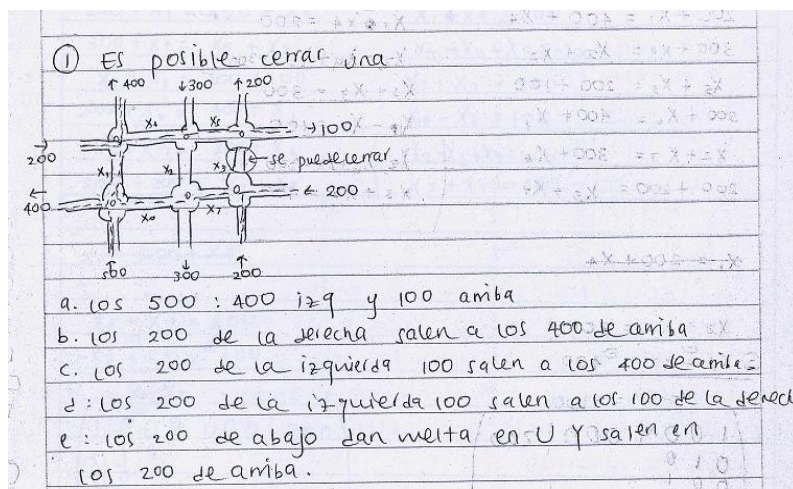 ① Es posible cerrar una
↑ 400 ↓300 ↑200
X4 X5 →100
200 X1 X2 X3 ← se puede cerrar
400 ← 200
X6 X7
500 300 200
a. los 500 : 400 izq y 100 arriba
b. los 200 de la derecha salen a los 400 de arriba
c. los 200 de la izquierda 100 salen a los 400 de arriba.
d: los 200 de la izquierda 100 salen a los 100 de la derech
e: los 200 de abajo dan vuelta en U y salen en
los 200 de arriba.